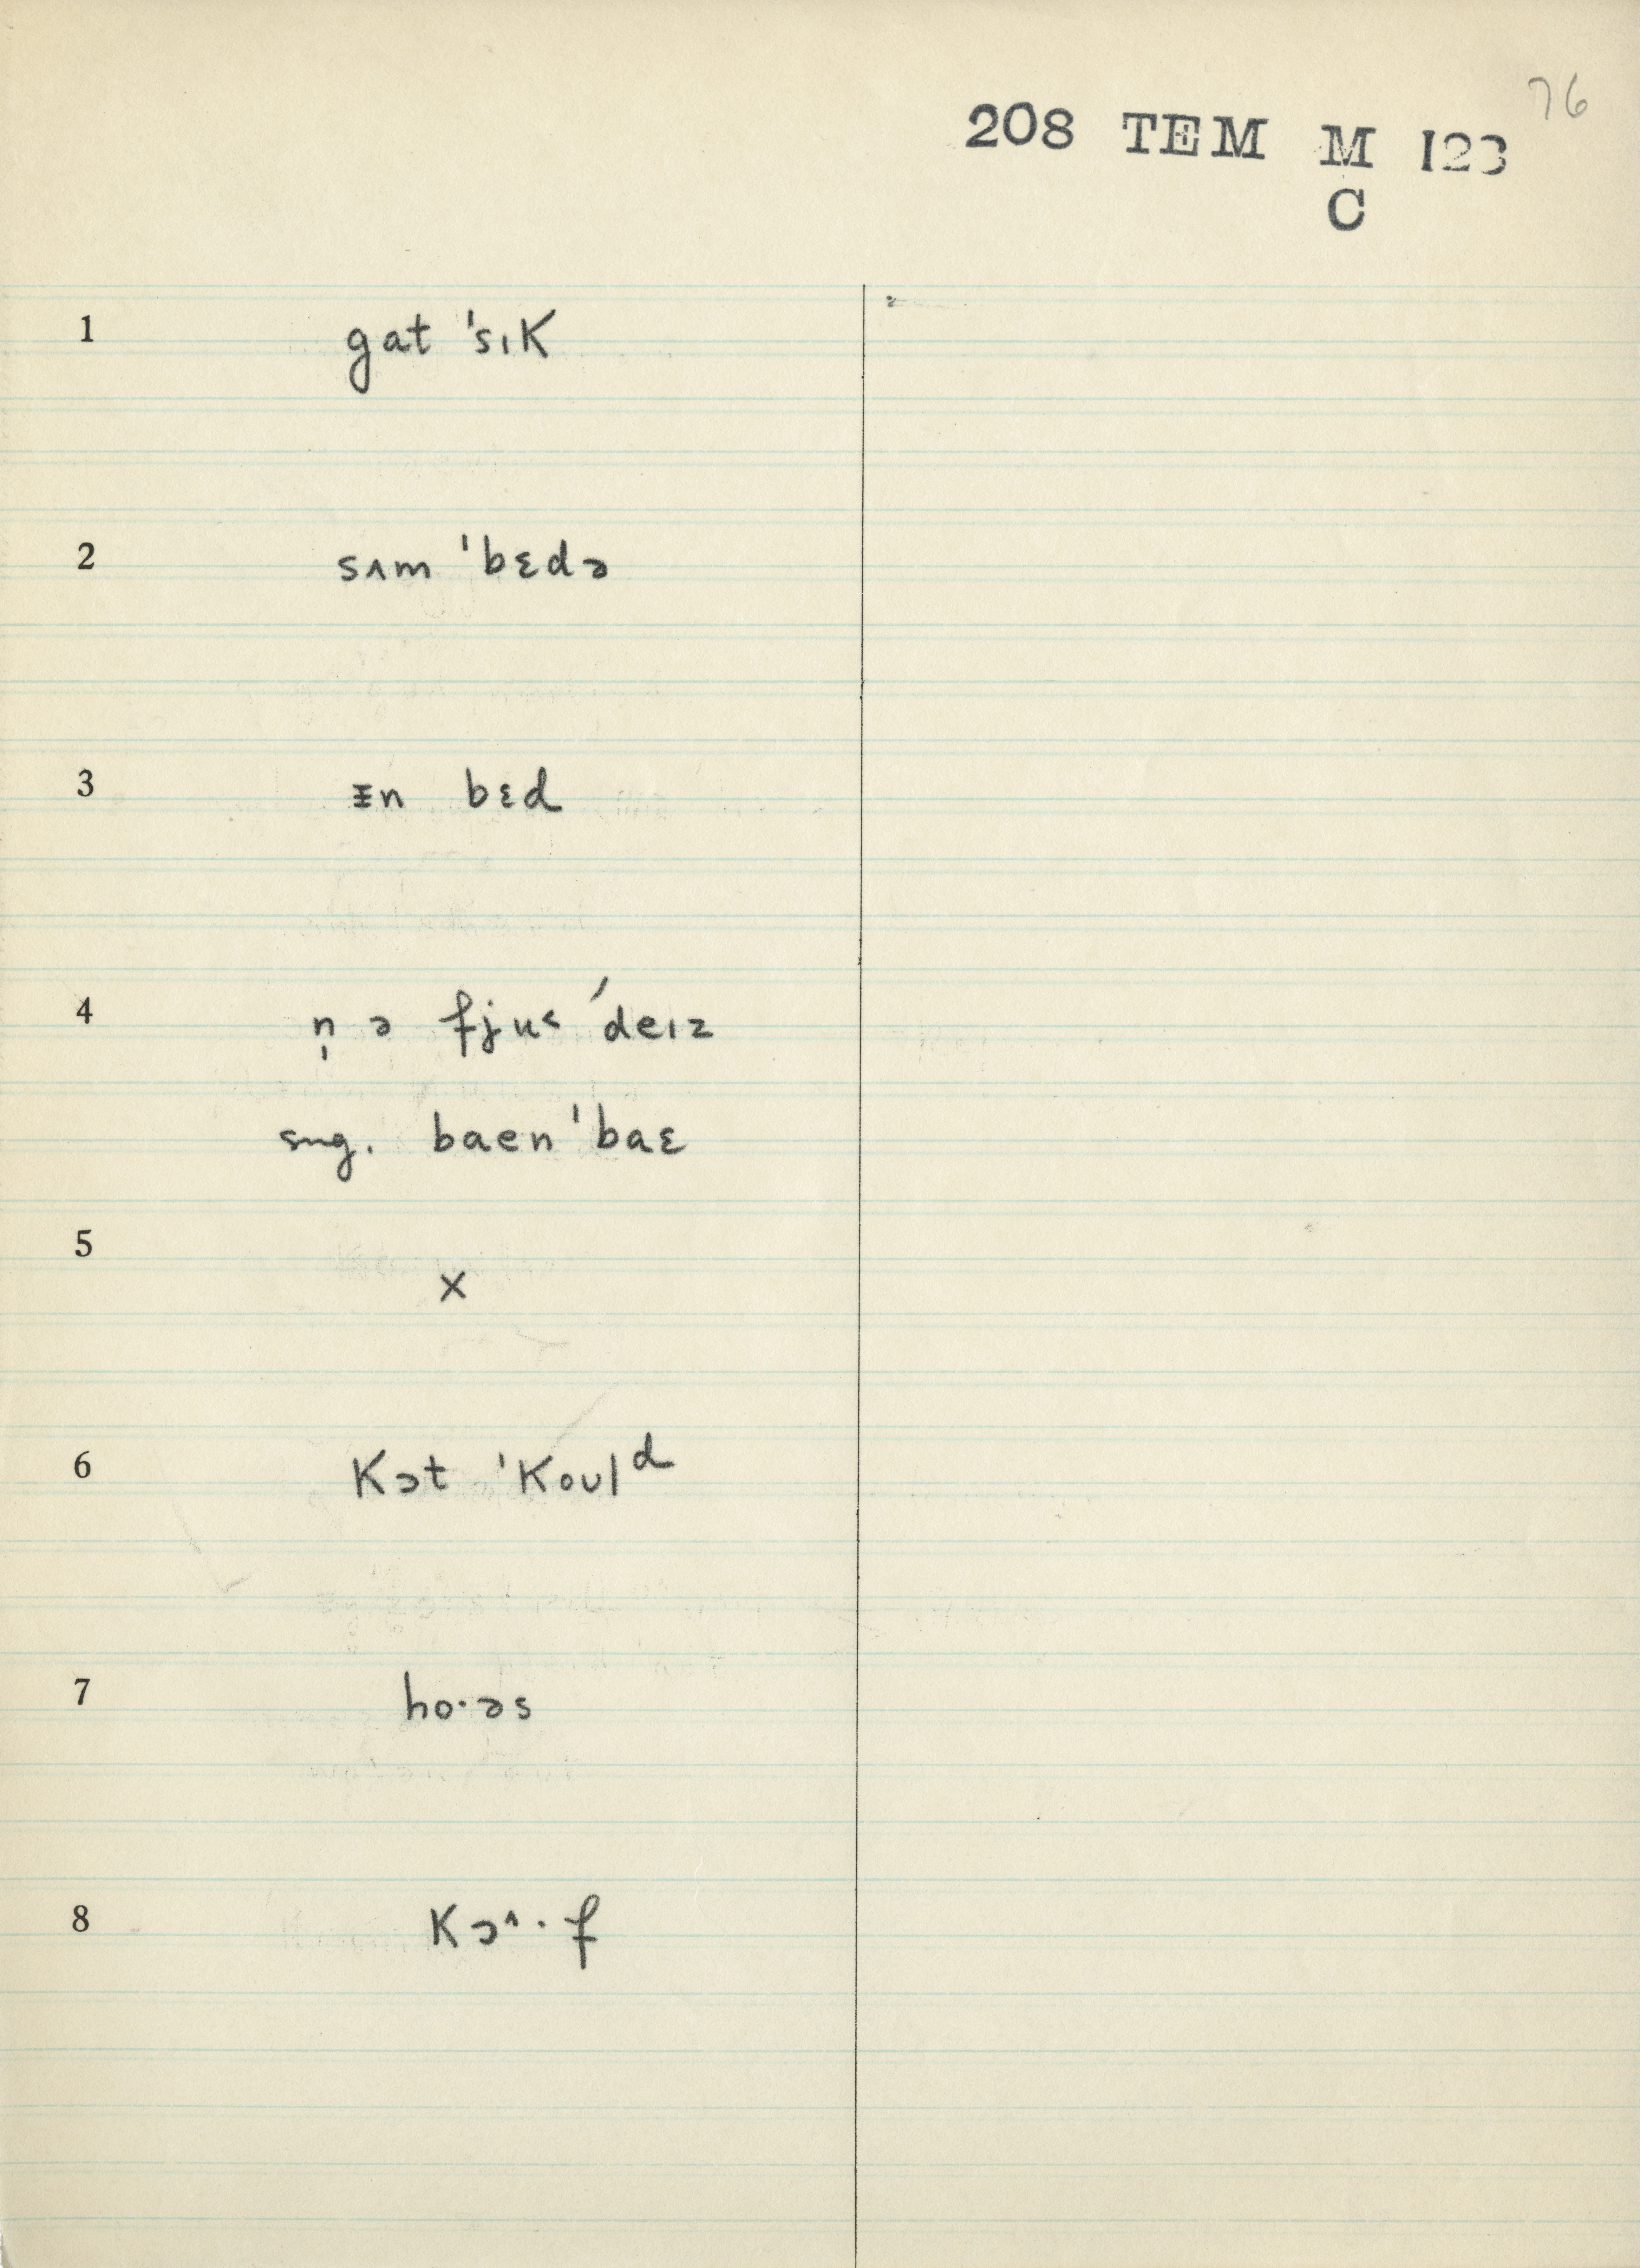 76
208 TEM M 123
C
1 gat ˈsɪK
2 sʌm ˈbɛdə
3 ɪn bɛd
4 n̩ ə fju˂ ˈdeɪz
sug. baen ˈbaɛ
5 x
6 Kɔt ˈKoʊlᵈ
7 ho·əs
8 Kɔ˄·f